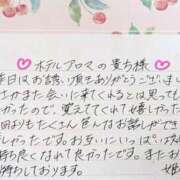 ホテルアロマの貴方様
昨日はお誘い頂きありがとうございまし
さかまた会いに来てくれるとは思っても
かったので、覚えててくれて嬉しかった
回おりもたくさん色んなお話しができ
しかったです。お互いにいっぱい
持ち良くなれて良かったです。またお
待ちしております。